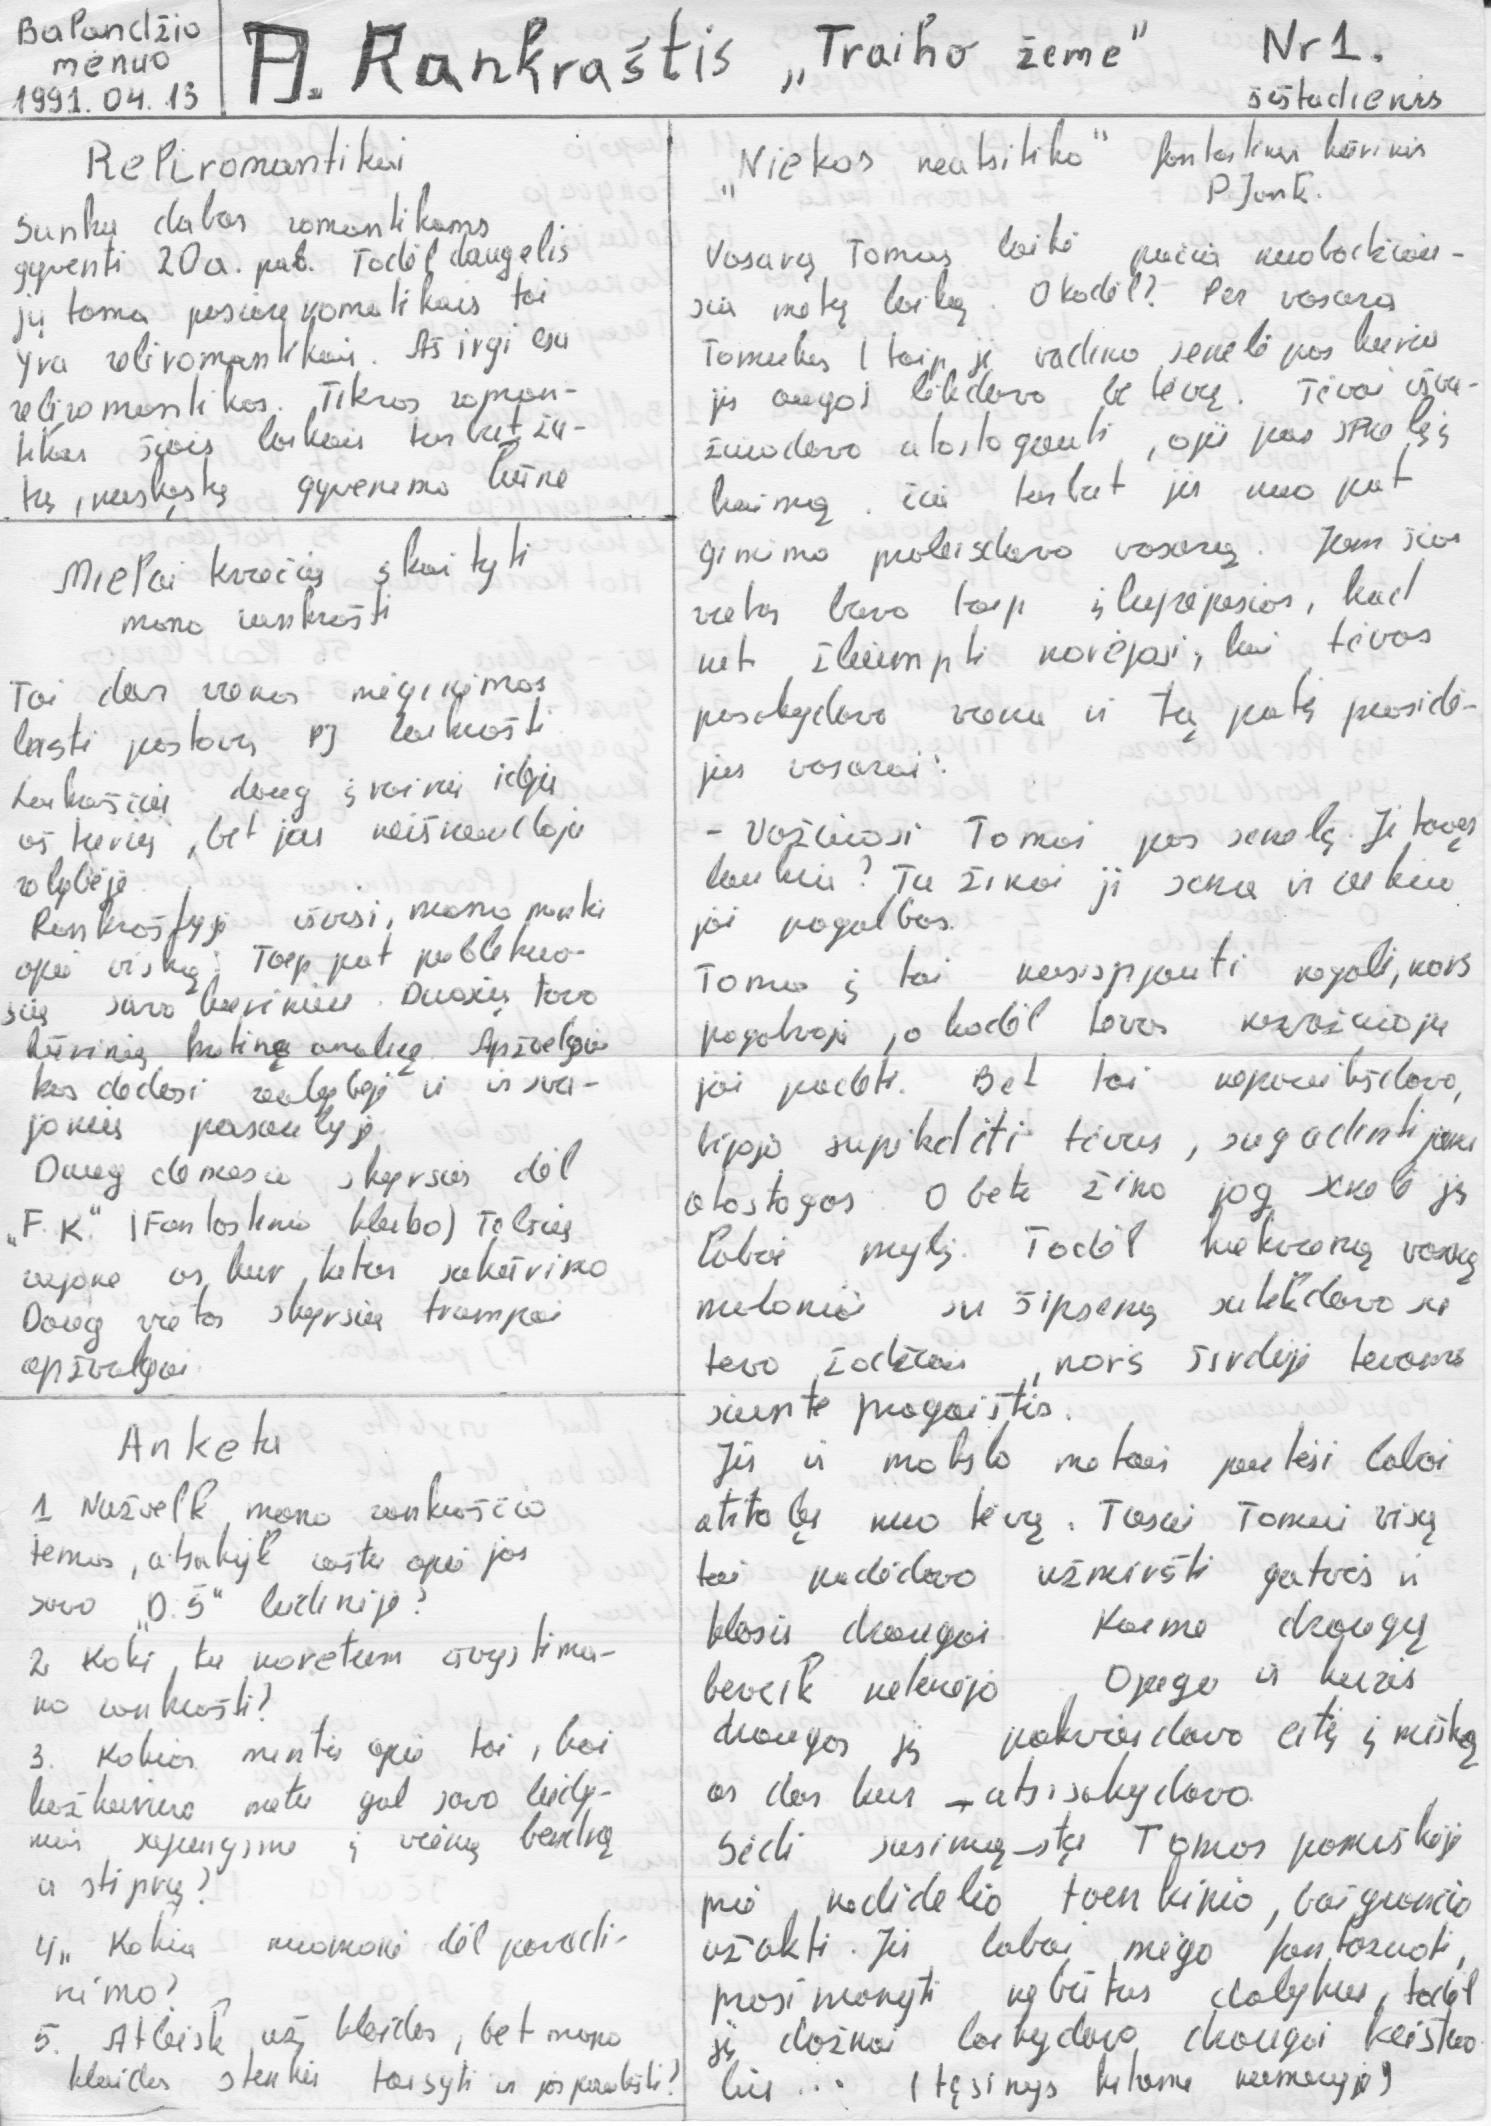 Balandžio
mėnuo
1991.04.13
PJ. Rankraštis „Traiho žemė" Nr 1.
šeštadienis
Reliromantikai
Sunku dabar romantikams
gyventi 20a. pab. Todėl daugelis
jų tampa
yra reliromantikais. Aš irgi esu
reliromantikas. Tikras roman-
tikas šiais laikais turbūt žū-
tų, nuskęstų gyvenimo liūne
Mielai kviečiu skaityti
mano rankraštį
Tai dar vienas mėginimas
leisti pastovų PJ laikraštį
daug įvairių idėjų
aš turiu, bet jas neišnaudoju
Rankraštyje išvysi, mano mintis
apie viską. Taip pat publikuo-
siu savo kūrinius. Duosiu tavo
kūrinių būtiną analizę. Apžvelgsiu
kas dedasi realybėje ir ir sva-
jonių pasaulyje.
Daug dėmesio skirsiu dėl
„F.K." (Fantastinio klubo) Telšių
rajone ar kur kitur sukūrimo
Daug vietos skirsiu trumpai
apžvalgai.
Anketa
1 Nužvelk mano rankraščio
temas, atsakyk raštu apie jas
savo „D.Š" leidinyje?
2 Kokį tu norėtum išvysti ma-
no rankraštį?
3. Kokios mintis apie tai, kai
kažkuriuo metu gal savo leidy-
nius sujungsime į vieną bendrą
ir stiprų?
4„ Kokia nuomonė dėl pavadi-
nimo?
5. Atleisk už klaidas, bet mano
klaidas stenkis taisyti ir jas pabraukti?
„Niekas neatsitiko" fantastinis kūrinis
P.Jank.
Vasarą Tomas laikė pačiu nuobodžiau-
siu metų laiku. O kodėl? Per vasarą
Tomukas (taip jį vadino senelė pas kurią
jis augo) likdavo be tėvų. Tėvai išva-
žiuodavo atostogauti, o jis pas senelę į
kaimą. Čia turbūt jis nuo pat
gimimo praleisdavo vasarą. Jam šios
vietos buvo taip įkyrėjusios, kad
net žliumpti norėjosi, kai tėvas
pasakydavo viena ir tą patį prasidė-
jus vasarai:
- Važiuosi Tomai pas senelę. Ji tavęs
laukia? Tu žinai ji sena ir reikia
jai pagalbos.
Tomas į tai nusispjauti negali, nors
pagalvoja, o kodėl tėvas nevažiuoja
jai padėti. Bet tai neprieštaraudavo,
bijojo supykdyti tėvus, sugadinti jiems
atostogas. O beto žino jog senelė jį
labai myli. Todėl kiekvieną vasarą
maloniai su šypsena sutikdavo su
tėvo žodžiais, nors širdyje tėvams
siuntė prageištis.
Jis ir mokslo metais jautėsi labai
atitolęs nuo tėvų. Tačiau Tomui visą
tai padėdavo užmiršti gatvės ir
klasės draugai. Kaime draugų
beveik neturėjo. O jeigu ir kuris
draugas jį pakviesdavo eitį į mišką
ar dar kur - atsisakydavo.
Sėdi susimąstęs Tomas pamiškėje
prie nedidelio tvenkinio, baigiančio
užakti. Jis labai mėgo fantazuoti,
prasimanyti nebūtus dalykus, todėl
jį dažnai laikydavo draugai keistuo-
liu ... (tęsinys kitame numeryje)